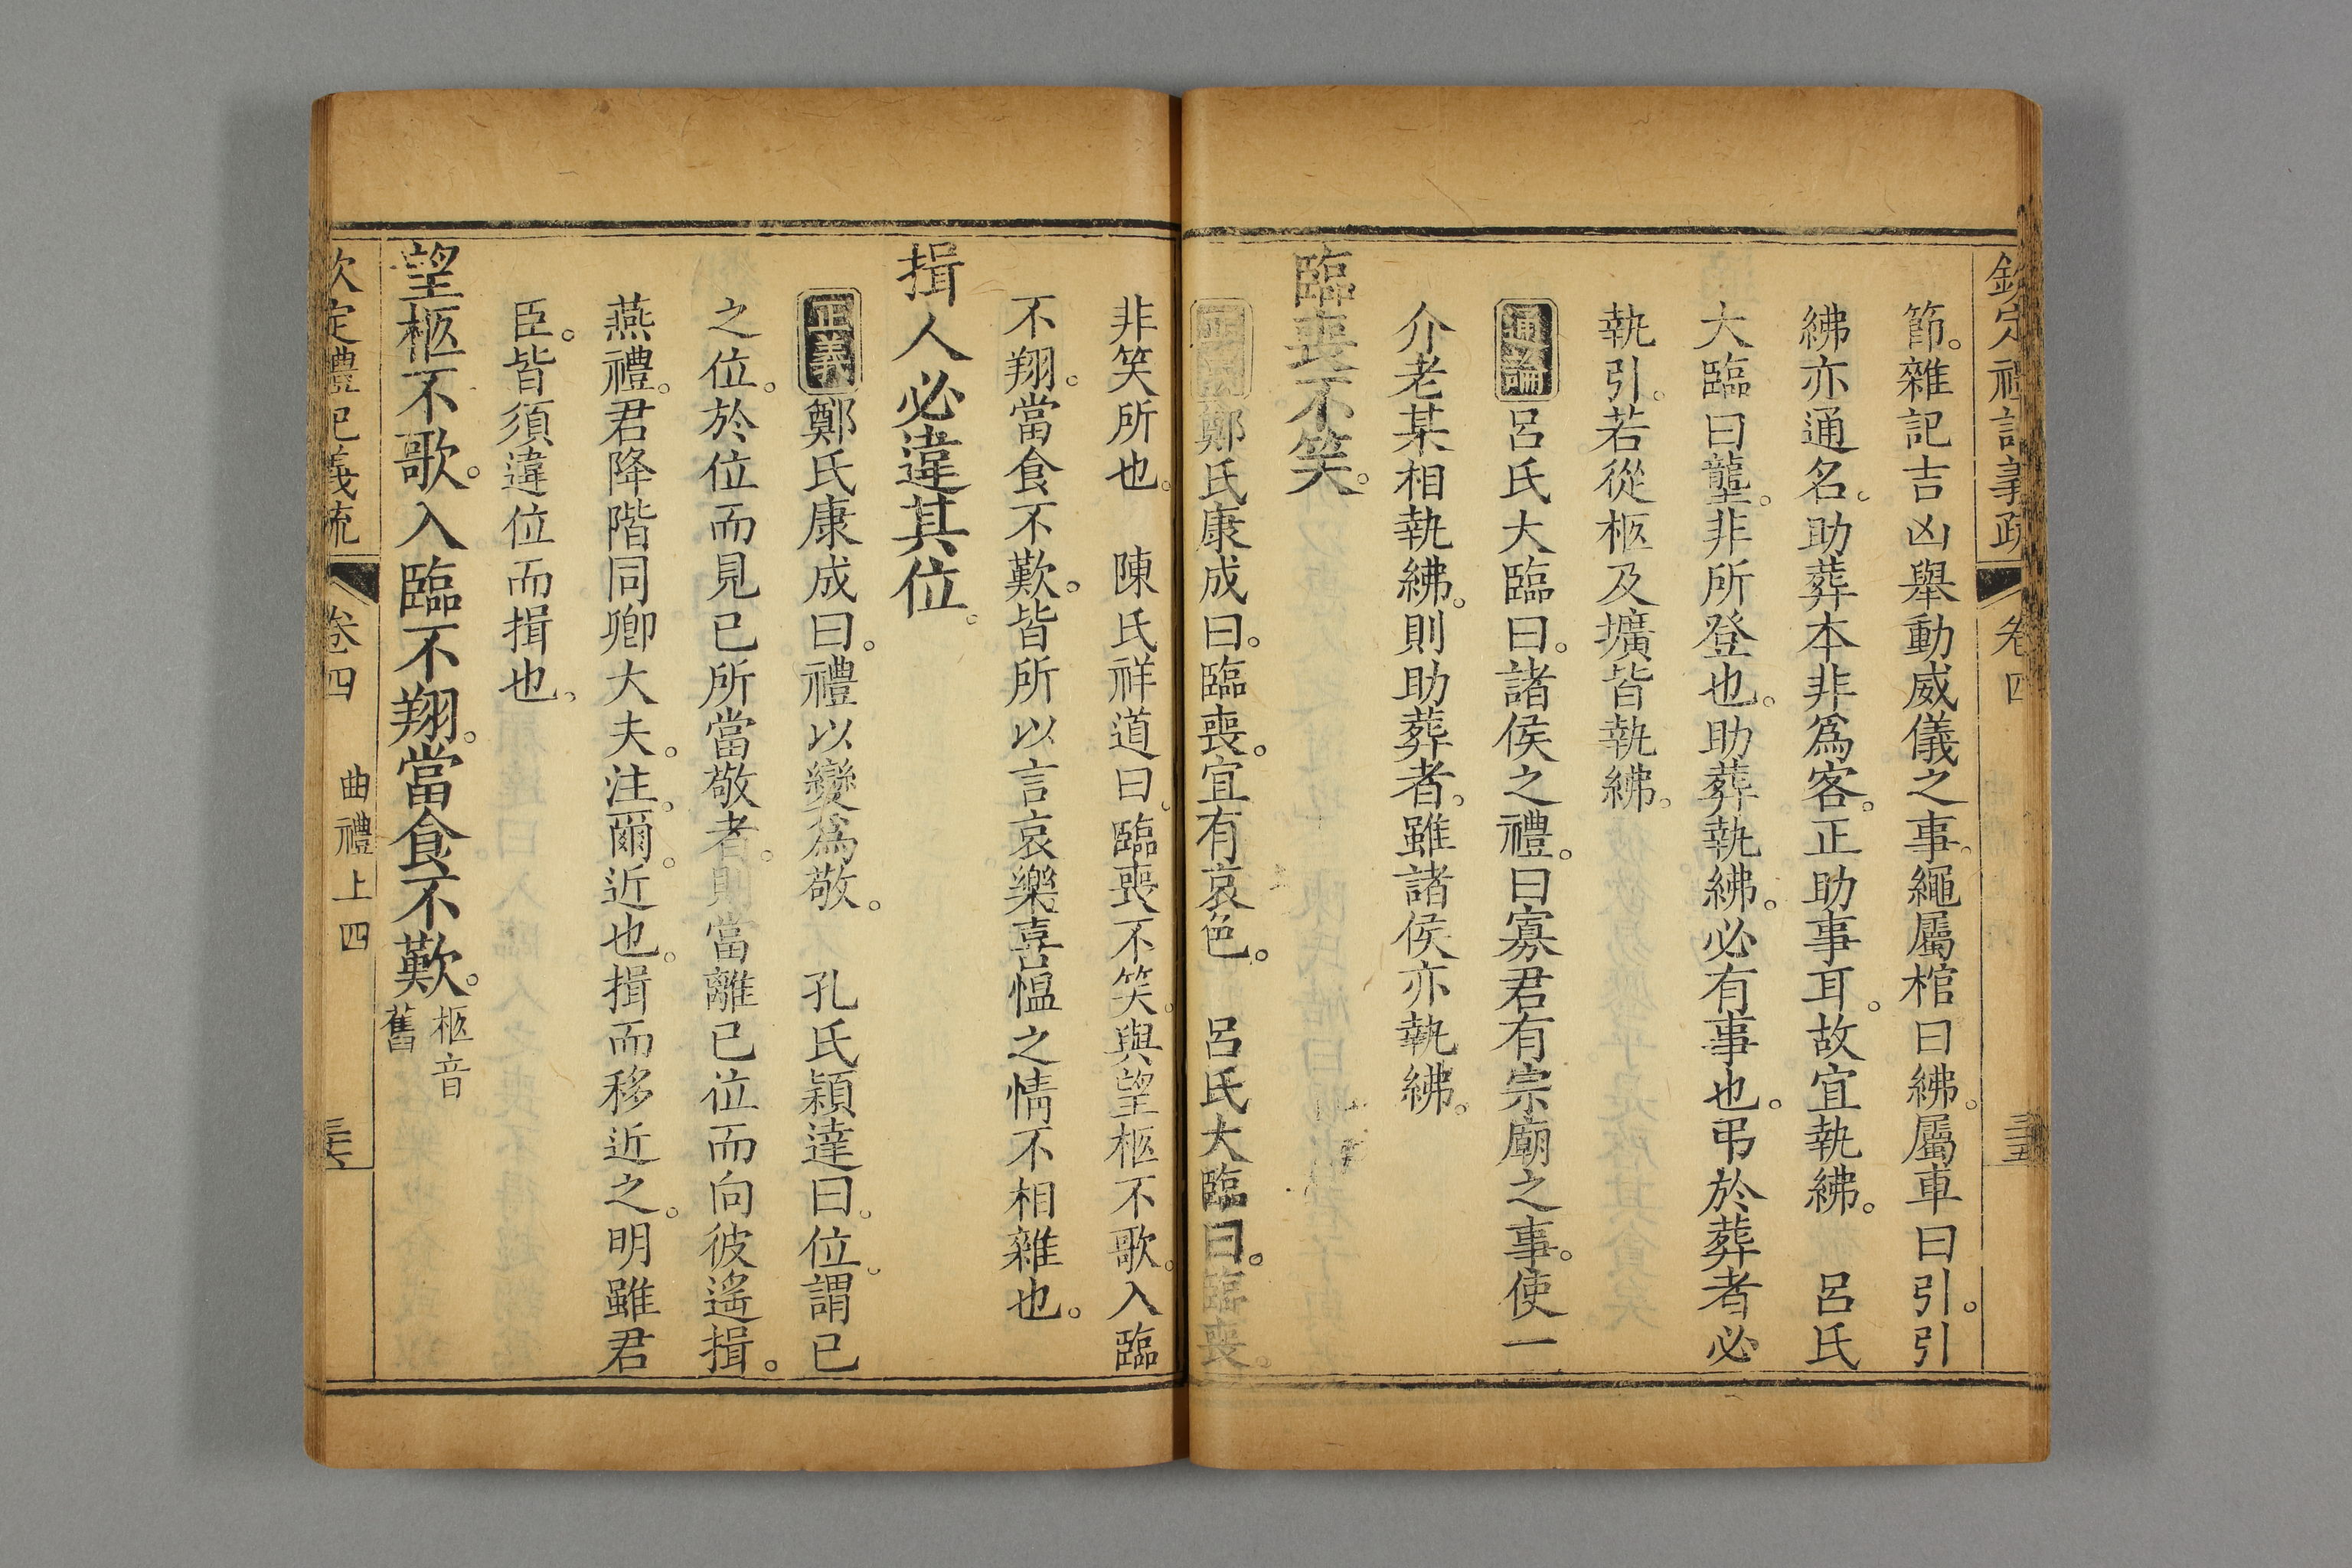 欽定禮記義疏 卷四 三五
節。雜記吉凶舉動威儀之事。繩屬棺曰紼。屬車曰引。引
紼亦通名。助葬本非爲客。正助事耳。故宜執紼。 呂氏
大臨曰壟。非所登也。助葬執紼。必有事也。弔於葬者必
執引。若從柩及壙皆執紼。
通論呂氏大臨曰。諸侯之禮。曰寡君有宗廟之事。使一
介老某相執紼。則助葬者。雖諸侯亦執紼。
臨喪不笑。
正義鄭氏康成曰。臨喪。宜有哀色。 呂氏大臨曰。臨喪。
非笑所也。 陳氏祥道曰。臨喪不笑。與望柩不歌。入臨
不翔。當食不歎。皆所以言哀樂喜慍之情不相雜也。
揖人必違其位。
正義鄭氏康成曰。禮以變爲敬。 孔氏穎達曰。位。謂已
之位。於位而見已所當敬者。則當離已位而向彼遙揖。
燕禮。君降階同卿大夫。注。爾。近也。揖而移近之。明雖君
臣。皆須違位而揖也。
望柩不歌。入臨不翔。當食不歎。柩音
舊
欽定禮記義疏 卷四 曲禮上四